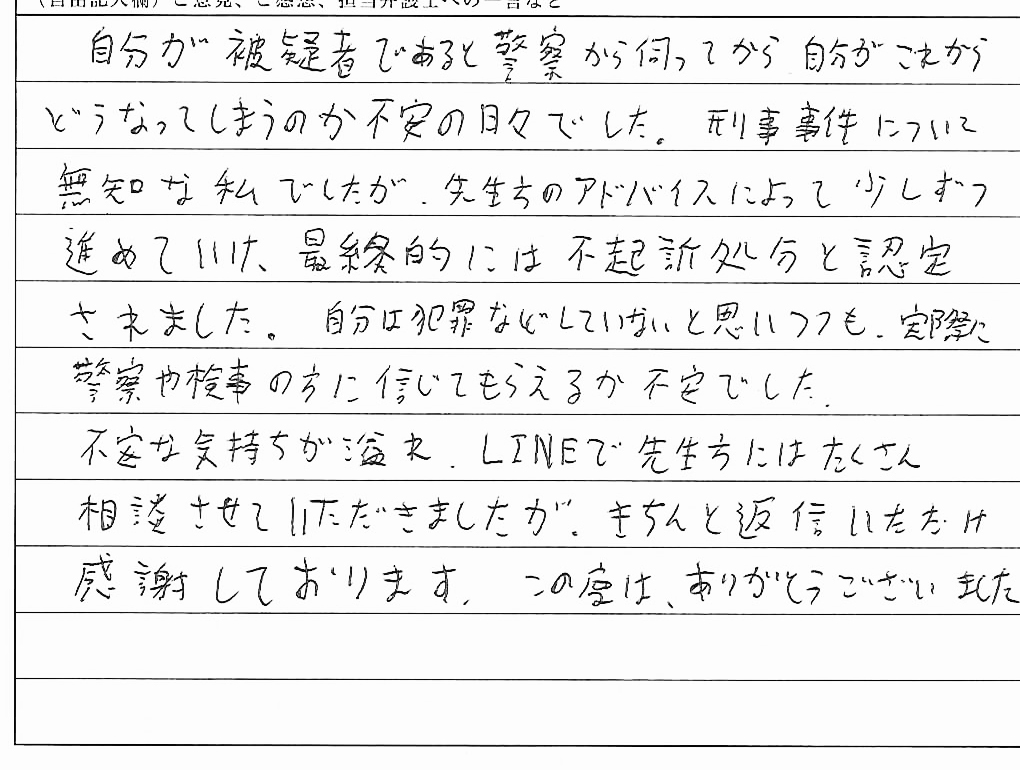 (自由記入欄)ご意見、ご感想、担当弁護士への一言など
自分が被疑者であると警察から伺ってから自分がこれから
どうなってしまうのか不安の日々でした。刑事事件について
無知な私でしたが、先生方のアドバイスによって少しずつ
進めていけ、最終的には不起訴処分と認定
されました。自分は犯罪などしていないと思いつつも、実際に
警察や検事の方に信じてもらえるか不安でした。
不安な気持ちが溢れ、LINEで先生方にはたくさん
相談させていただきましたが、きちんと返信いただけ
感謝しております。この度は、ありがとうございました